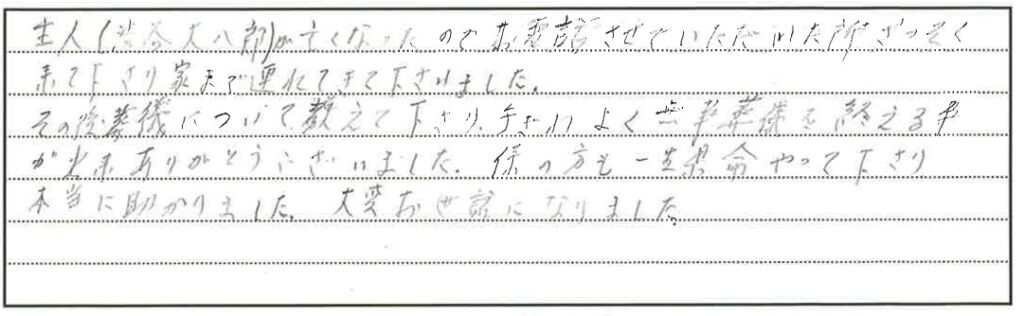 主人(渋谷大八郎)が亡くなったのでお電話させていただいた所さっそく
来て下さり家まで連れてきて下さいました。
その後葬儀について教えて下さり、手ぎわよく無事葬儀を終える事
が出来ありがとうございました。係の方も一生懸命やって下さり
本当に助かりました。大変お世話になりました。